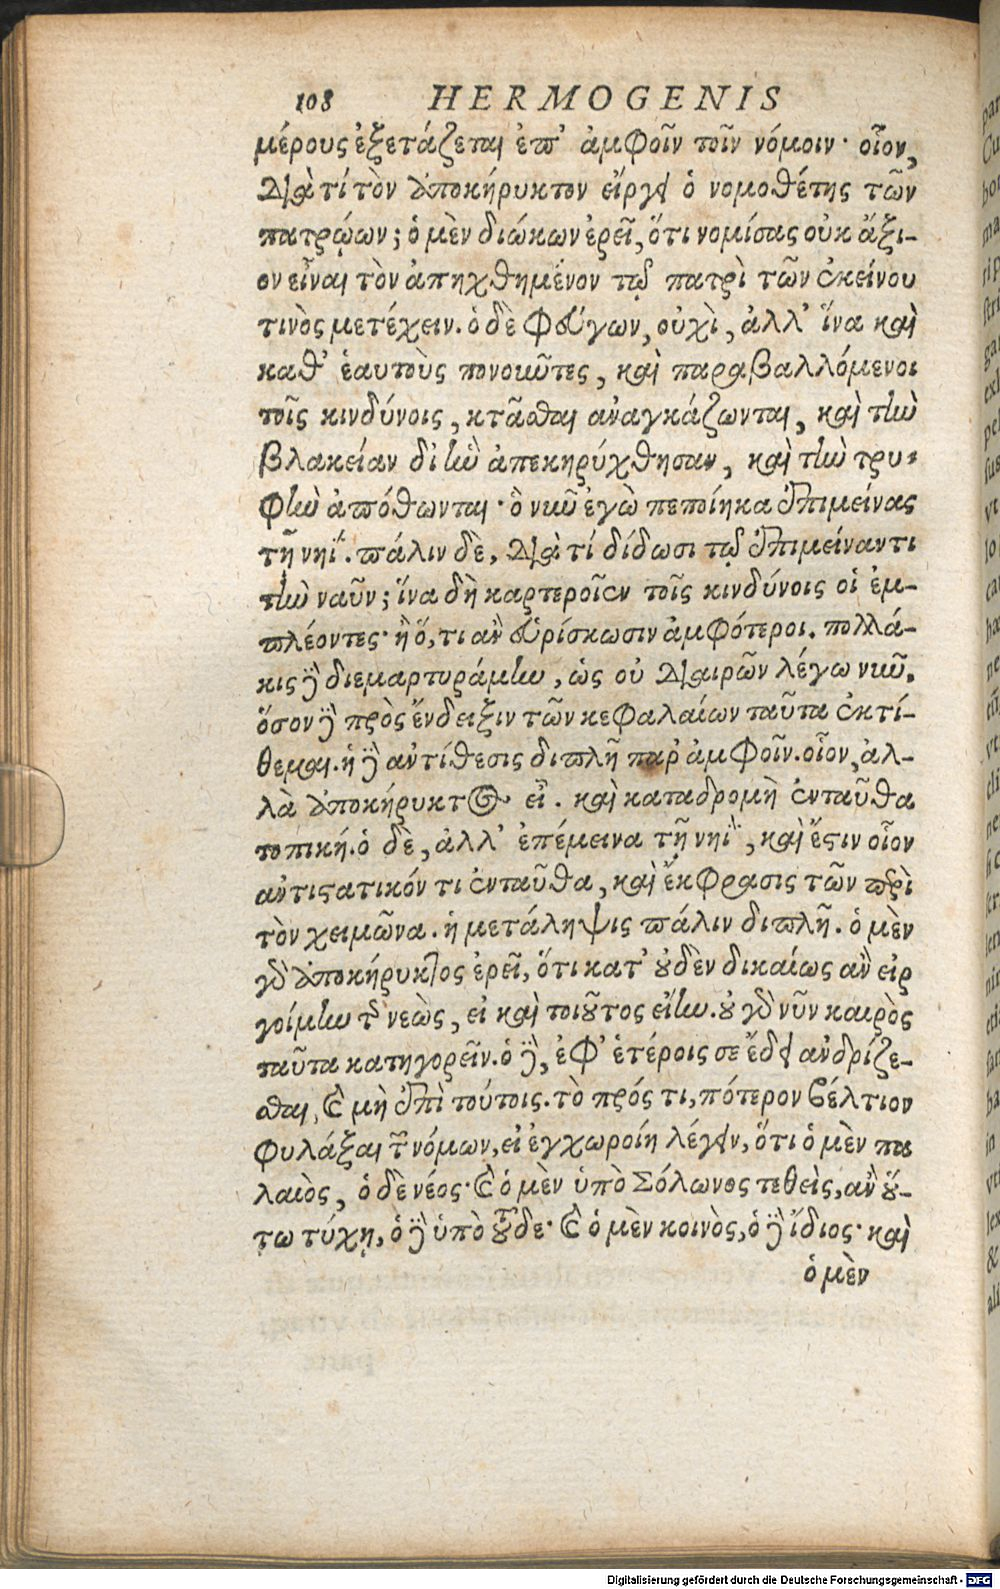 108 HERMOGENIS
μέρους ἐξετάζεται ἐπ' ἀμφοῖν τοῖν νόμοιν· οἷον,
Διὰ τί τὸν ἀποκήρυκτον εἴργει ὁ νομοθέτης τῶν
πατρῴων; ὁ μὲν διώκων ἐρεῖ, ὅτι νομίσας οὐκ ἄξι-
ον εἶναι τὸν ἀπηχθημένον τῷ πατρὶ τῶν ἐκείνου
τινὸς μετέχειν. ὁ δὲ φεύγων, οὐχὶ, ἀλλ' ἵνα καὶ
καθ' ἑαυτοὺς πονοῦντες, καὶ παραβαλλόμενοι
τοῖς κινδύνοις, κτᾶσθαι ἀναγκάζωνται, καὶ τὴν
βλακείαν δι' ἣν ἀπεκηρύχθησαν, καὶ τὴν τρυ-
φὴν ἀπόθωνται· ὃ νῦν ἐγὼ πεποίηκα ἐπιμείνας
τῇ νηΐ. πάλιν δὲ, Διὰ τί δίδωσι τῷ ἐπιμείναντι
τὴν ναῦν; ἵνα δὴ καρτεροῖεν τοῖς κινδύνοις οἱ ἐμ-
πλέοντες· ἢ ὅ, τι ἂν εὑρίσκωσιν ἀμφότεροι. πολλά-
κις δὲ διεμαρτυράμην, ὡς οὐ Διαιρῶν λέγω νῦν.
ὅσον δὲ πρὸς ἔνδειξιν τῶν κεφαλαίων ταῦτα ἐκτί-
θεμαι. ἡ δὲ ἀντίθεσις διπλῆ παρ' ἀμφοῖν. οἷον, ἀλ-
λὰ ἀποκήρυκτος εἶ. καὶ καταδρομὴ ἐνταῦθα
τοπική. ὁ δὲ, ἀλλ' ἐπέμεινα τῇ νηῒ, καὶ ἔστιν οἷον
ἀντιστατικόν τι ἐνταῦθα, καὶ ἔκφρασις τῶν περὶ
τὸν χειμῶνα. ἡ μετάληψις πάλιν διπλῆ. ὁ μὲν
γὰρ ἀποκήρυκτος ἐρεῖ, ὅτι κατ' οὐδὲν δικαίως ἂν εἰρ
γοίμην τῆς νεὼς, εἰ καὶ τοιοῦτος εἴην. οὐ γὰρ νῦν καιρὸς
ταῦτα κατηγορεῖν. ὁ δὲ, ἐφ' ἑτέροις σε ἔδει ἀνδρίζε-
σθαι, καὶ μὴ ἐπὶ τούτοις. τὸ πρός τι, πότερον βέλτιον
φυλάξαι τῶν νόμων, εἰ ἐγχωροίη λέγειν, ὅτι ὁ μὲν πα
λαιὸς, ὁ δὲ νέος· καὶ ὁ μὲν ὑπὸ Σόλωνος τεθεὶς, ἂν οὕ-
τω τύχῃ, ὁ δὲ ὑπὸ τοῦδε· καὶ ὁ μὲν κοινὸς, ὁ δὲ ἴδιος· καὶ
ὁ μὲν
Digitalisierung gefördert durch die Deutsche Forschungsgemeinschaft - DFG